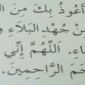 أَعُوذُ بِكَ مِنَ
مِنْ جَهْدِ الْبَلَاءِ وَ
ـاءِ. اَللّٰهُمَّ إِنِّي
ـمَ الرَّاحِمِينَ.